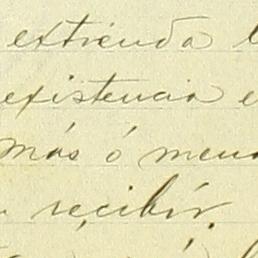 extienda
existencia e
más ó men
recibir.